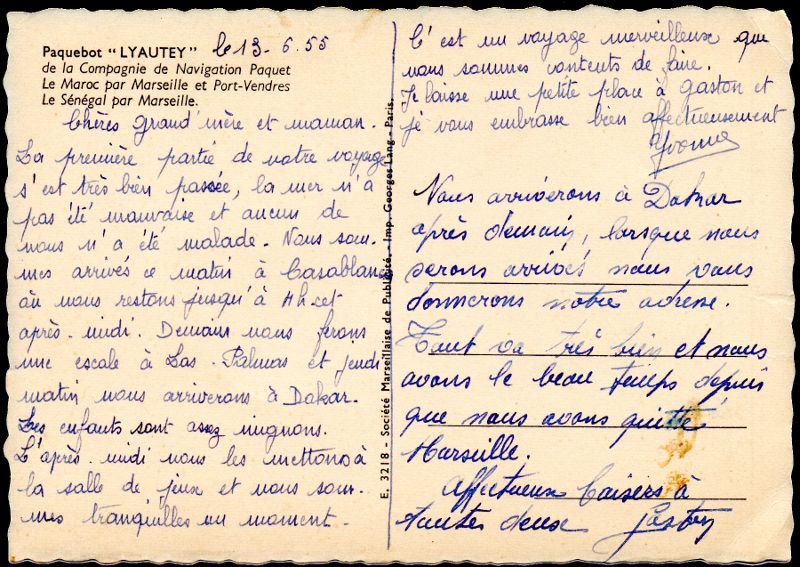 Paquebot "LYAUTEY" le 13-6.55
de la Compagnie de Navigation Paquet
Le Maroc par Marseille et Port-Vendres
Le Sénégal par Marseille.
Chères Grand'mère et maman.
La première partie de notre voyage
s'est très bien passée, la mer n'a
pas été mauvaise et aucun de
nous n'a été malade. Nous som-
mes arrivés ce matin à Casablanca
où nous restons jusqu'à 4h cet
après-midi. Demain nous ferons
une escale à Las-Palmas et jeudi
matin nous arriverons à Dakar.
Les enfants sont assez mignons.
L'après-midi nous les mettons à
la salle de jeux et nous som-
mes tranquilles un moment.
E. 3218 - Société Marseillaise de Publicité - Imp. Georges Lang - Paris.
C'est un voyage merveilleux que
nous sommes contents de faire.
Je laisse une petite place à gaston et
je vous embrasse bien affectueusement
Yvonne
Nous arriverons à Dakar
après demain, lorsque nous
serons arrivés nous vous
donnerons notre adresse.
Tout va très bien et nous
avons le beau temps depuis
que nous avons quitté
Marseille.
Affectueux baisers à
toutes deux Gaston